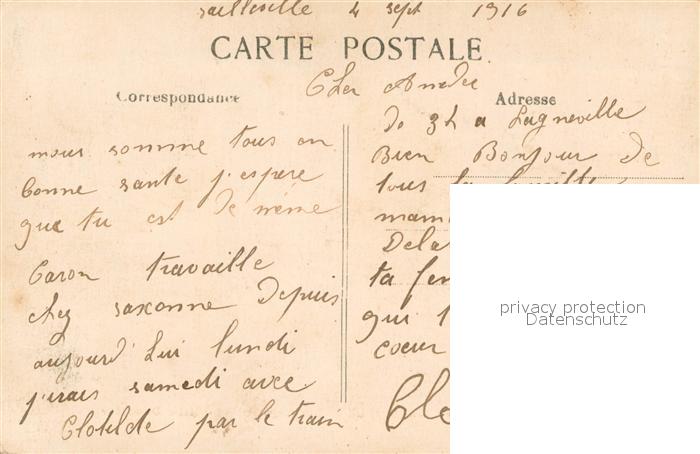 sailleville 4 sept 1916
CARTE POSTALE
Correspondance
Cher André
nous somme tous en
bonne sante j'espère
que tu est de même
Caron travaille
chez saxonne depuis
aujourd'hui lundi
j'irais samedi avec
Clotilde par le train
Adresse
de 3h a Lagneville
Bien Bonjour de
tous la famille
mam
Dela
ta fem
qui t
coeur
Clo
privacy protection
Datenschutz